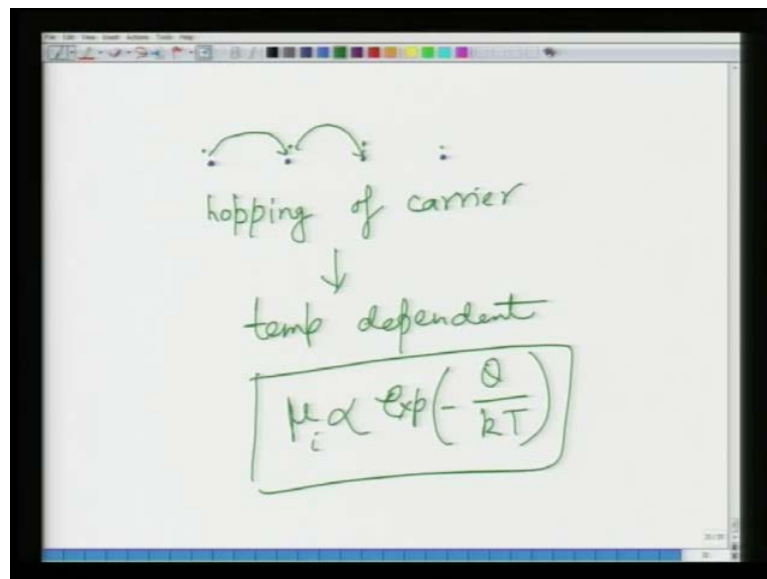 File Edit View Insert Actions Tools Help
hopping of carrier
↓
temp dependent
μi ∝ exp(- Q / kT)